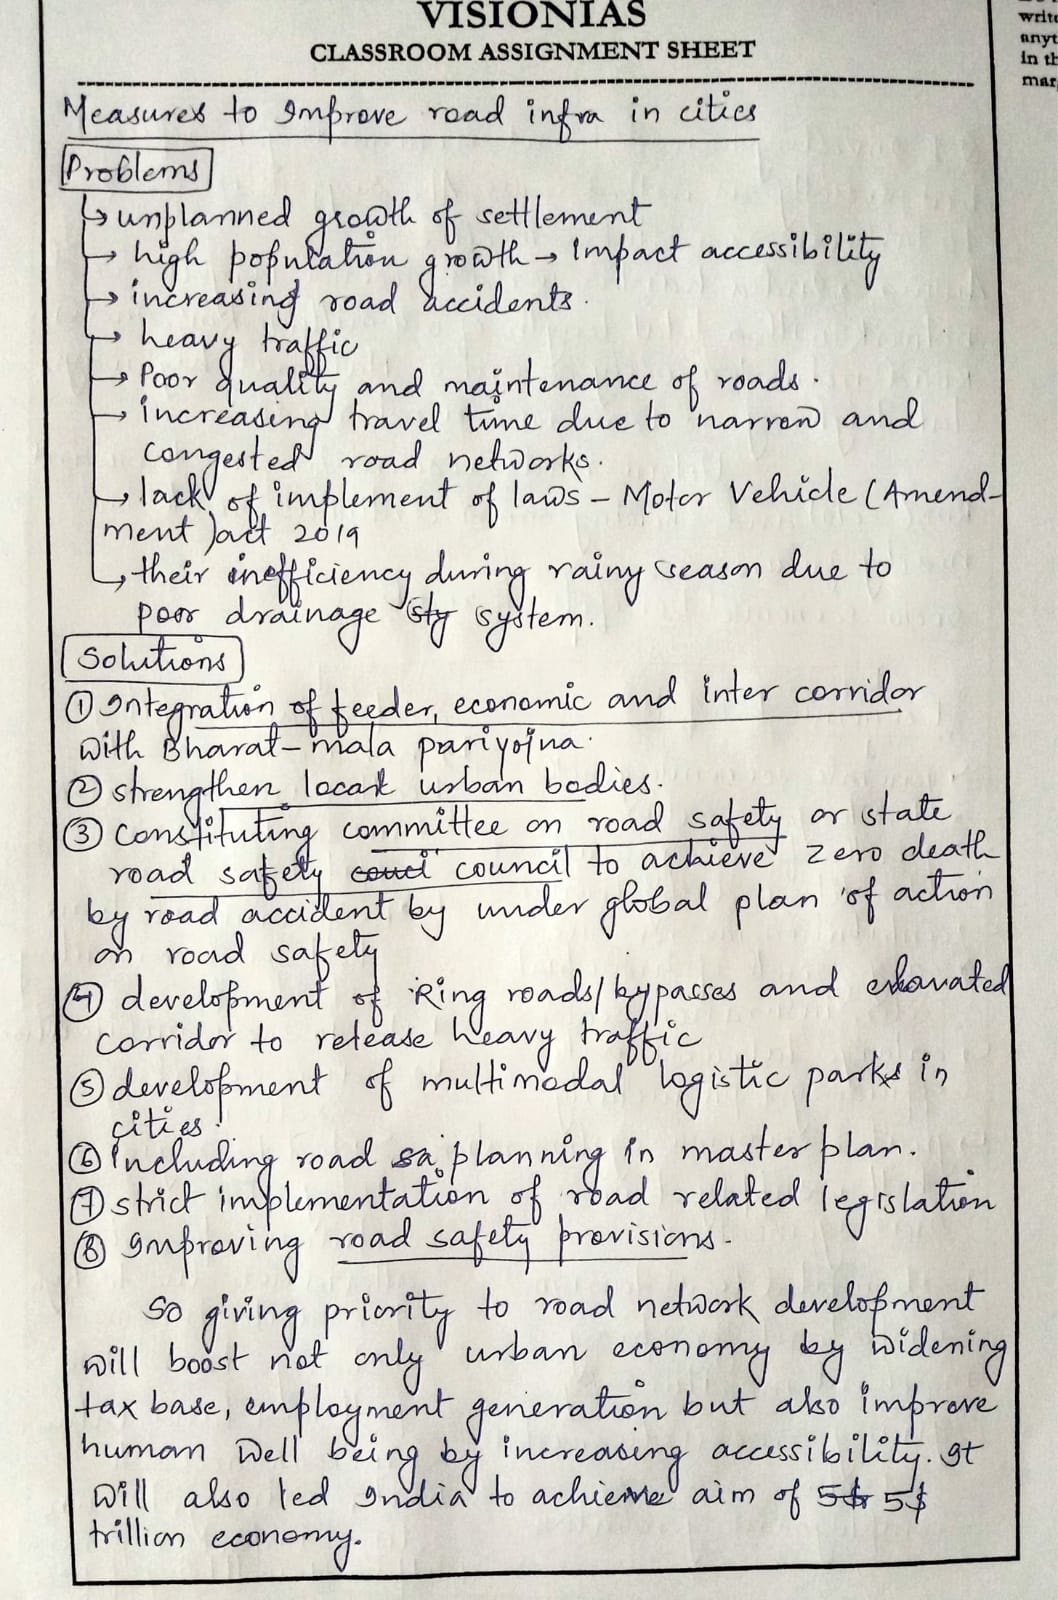 VISIONIAS
CLASSROOM ASSIGNMENT SHEET
write
anyt
in th
mar
Measures to Improve road infra in cities
Problems
↳ unplanned growth of settlement
→ high population growth → Impact accessibility
→ increasing road accidents.
→ heavy traffic
→ Poor quality and maintenance of roads.
→ increasing travel time due to narrow and
congested road networks.
→ lack of implement of laws – Motor Vehicle (Amend-
ment) act 2019
↳ their inefficiency during rainy season due to
poor drainage sty system.
Solutions
① Integration of feeder, economic and inter corridor
with Bharat-mala pariyojna.
② strengthen local urban bodies.
③ Constituting committee on road safety or state
road safety council to achieve zero death
by road accident by under global plan of action
on road safety
④ development of Ring roads/bypasses and
corridor to release heavy traffic
⑤ development of multimodal logistic parks in
cities.
⑥ Including road sa planning in master plan.
⑦ strict implementation of road related legislation
⑧ Improving road safety provisions.
So giving priority to road network development
will boost not only urban economy by widening
tax base, employment generation but also improve
human well being by increasing accessibility. It
will also led India to achieve aim of 5$
trillion economy.